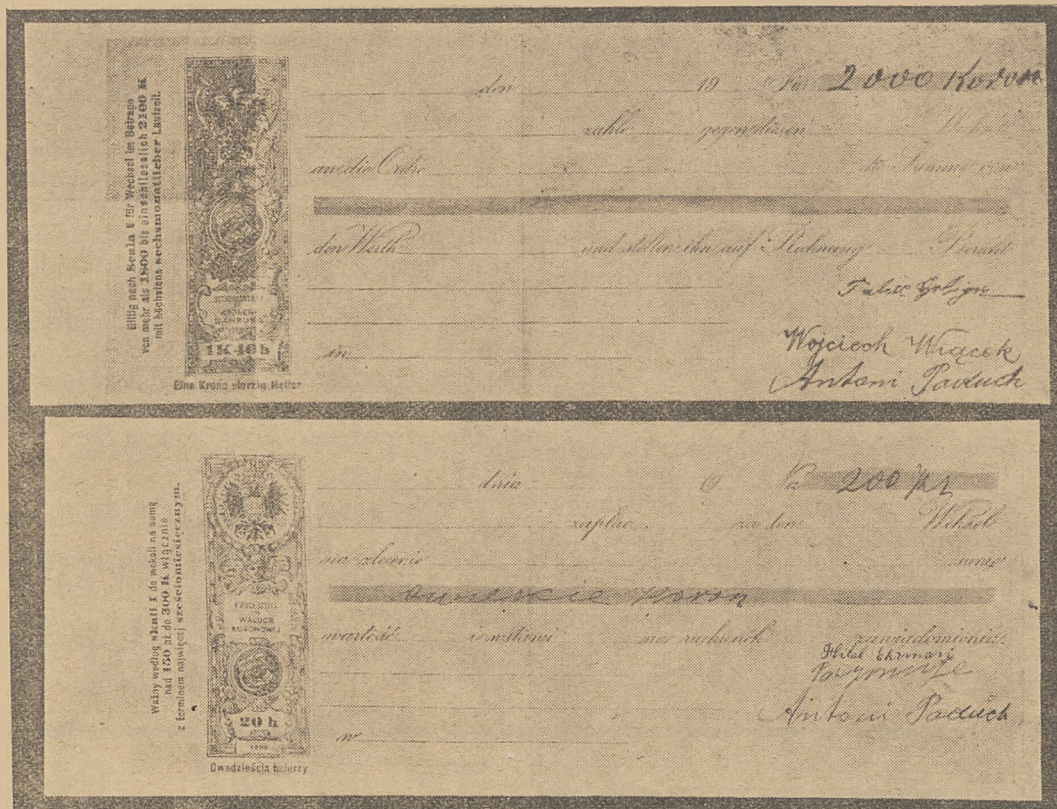 Giltig nach Scala I für Wechsel im Betrage
von mehr als 1800 bis einschliesslich 2100 K
mit höchstens sechsmonatlicher Laufzeit.
1K 40h
Eine Krone vierzig Heller
den 19 Für 2000 Koron
zahle gegen diesen Wechsel
an die Ordre die Summe von
den Werth und stellen ihn auf Rechnung Bericht
in
Wojciech Wiącek
Antoni Paduch
Ważny według skali I do weksli na sumę
nad 150 aż do 300 K włącznie
z terminem najwięcej sześciomiesięcznym.
WALUCIE
KORONOWEJ
20 h
Dwadzieścia halerzy
dnia 19 Na 200 Kr
zapłac za ten Weksel
na zlecenie sumę
dwieście Koron
wartość i wstawi na rachunek zawiadomienia.
Antoni Paduch
w